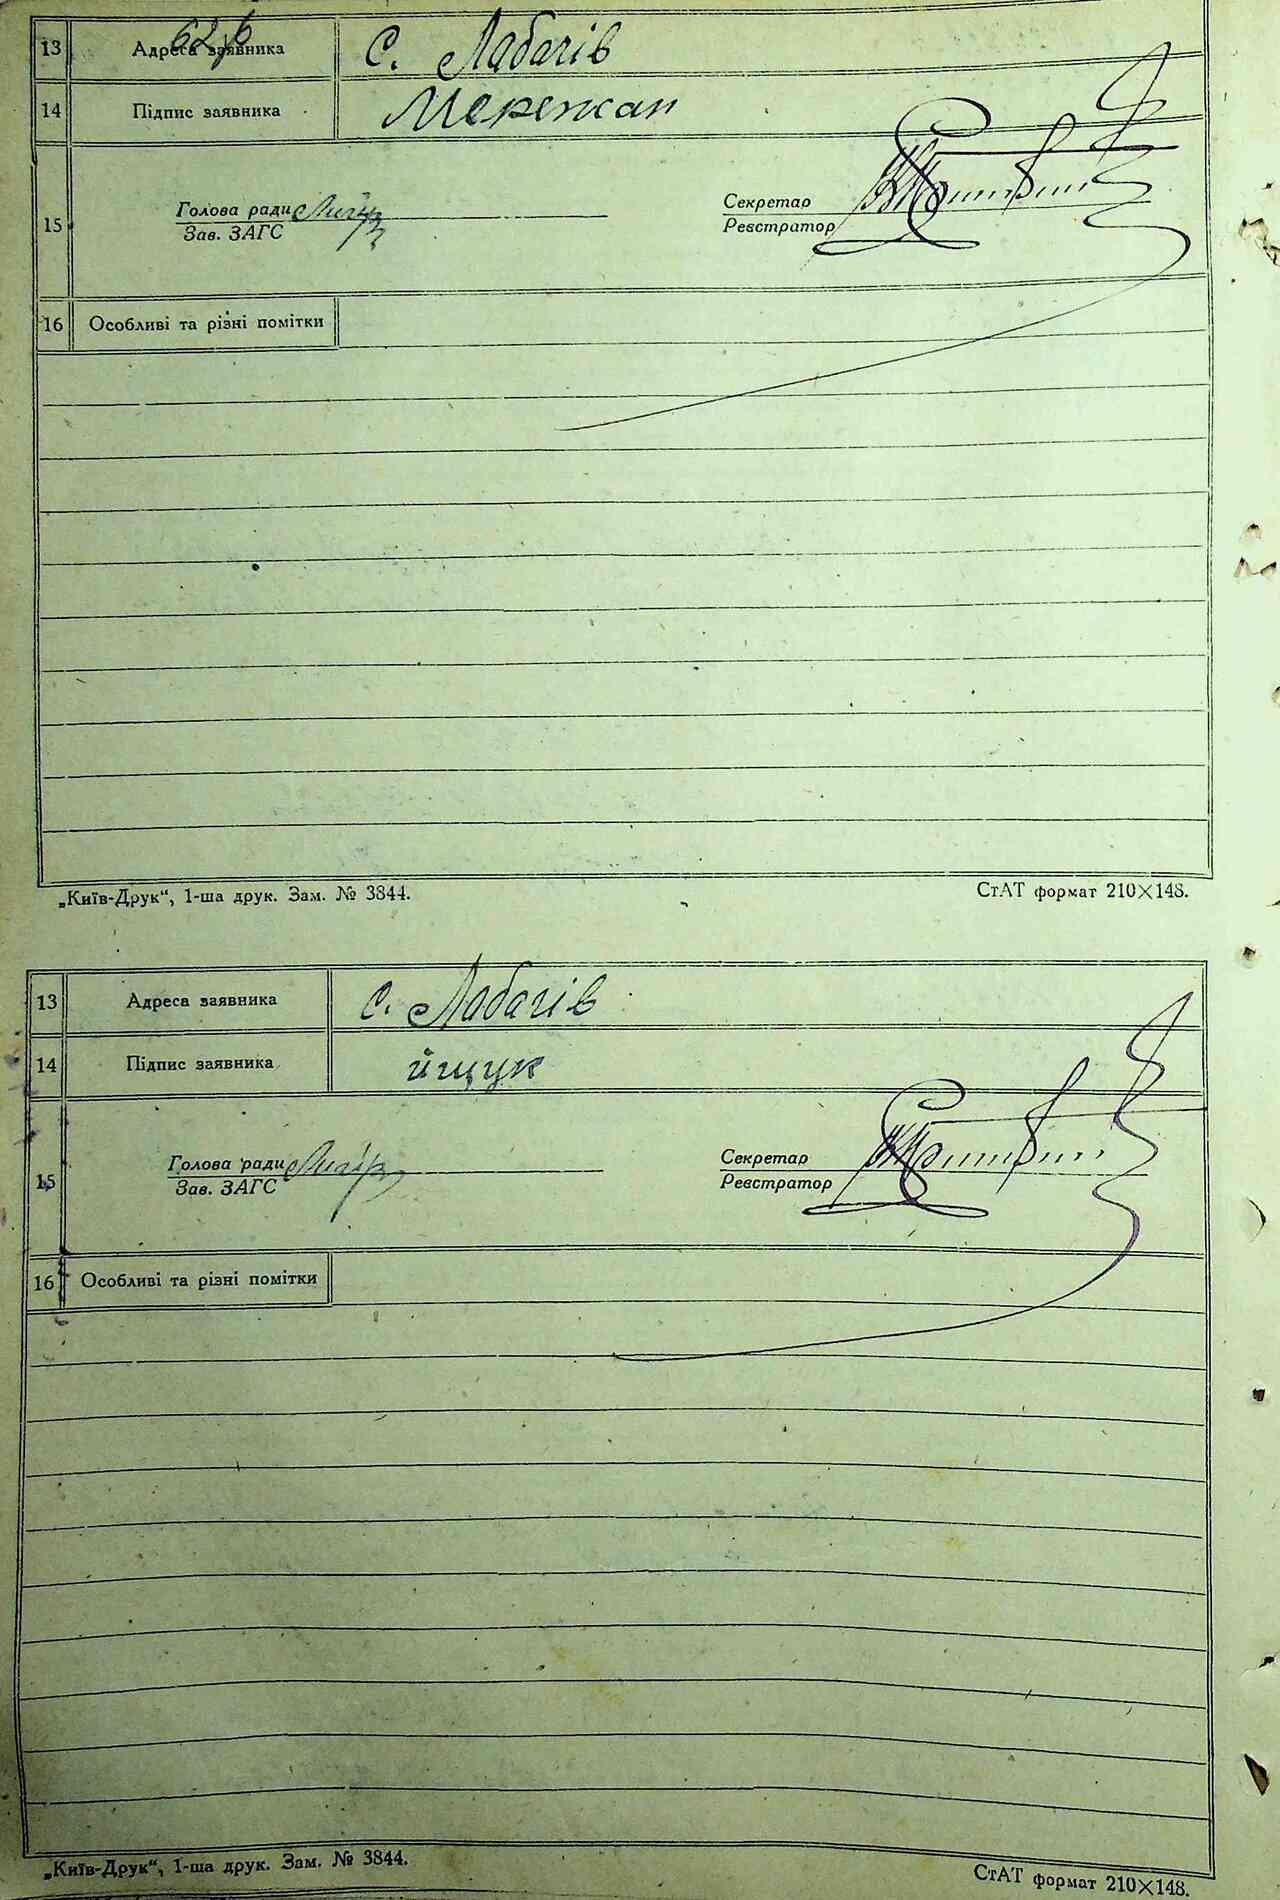 62зв
13 Адреса заявника с. Лабачів
14 Підпис заявника Мережан
15 Голова ради Секретар
Зав. ЗАГС Реєстратор
16 Особливі та різні помітки
„Київ-Друк“, 1-ша друк. Зам. № 3844. СтАТ формат 210×148.
13 Адреса заявника с. Лабачів
14 Підпис заявника йщук
15 Голова ради Секретар
Зав. ЗАГС Реєстратор
16 Особливі та різні помітки
„Київ-Друк“, 1-ша друк. Зам. № 3844. СтАТ формат 210×148.